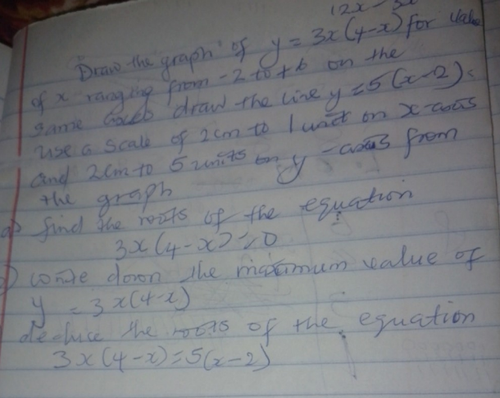 12x - 3x
Draw the graph of y = 3x(4-x) for value
of x ranging from -2 to +6 on the
same axes draw the line y = 5(x-2).
use a scale of 2cm to 1 unit on x-axis
and 2cm to 5 units on y-axis from
the graph
a) find the roots of the equation
3x(4-x)=0
write down the maximum value of
y = 3x(4-x)
deduce the roots of the equation
3x(4-x)=5(x-2)